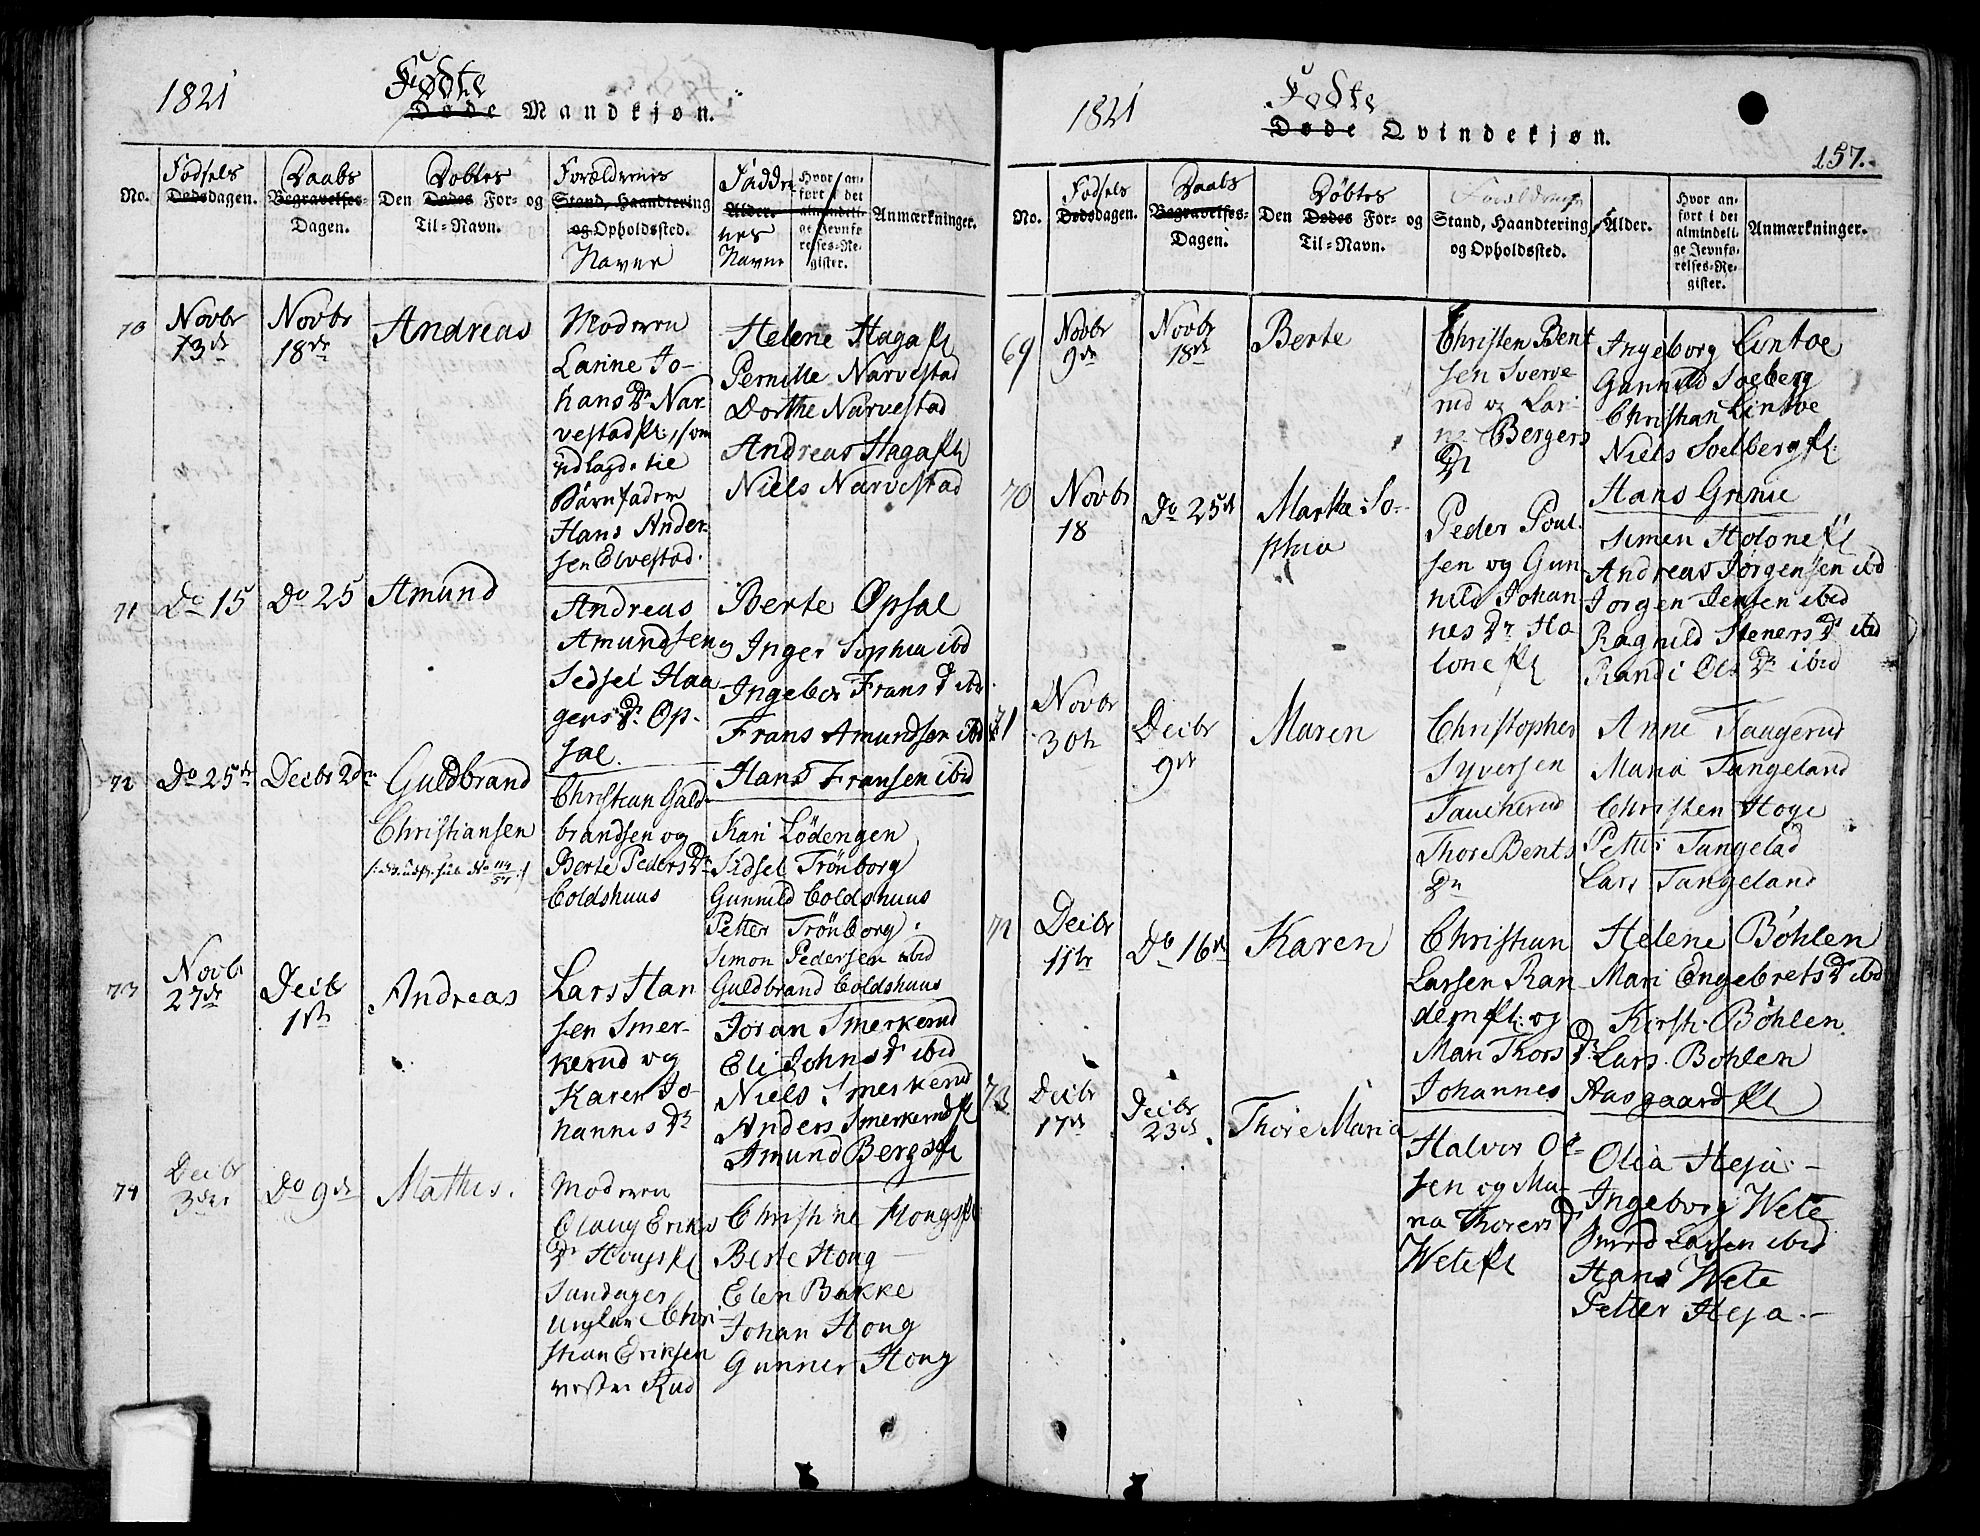 1821
Fødte
Døde Mandkjøn.
No.
Fødsels
Dødsdagen.
Daabs
Begravelses-
Dagen.
Døbtes
Den Dødes For- og
Til-Navn.
Forældrenes
Stand, Haandtering
og Opholdssted.
Navne
Fadder
Alder.
nes
Navne
Hvor an-
ført i det
almindeli-
ge Jevnfø-
relses-Re-
gister.
Anmærkninger.
70
Novbr
13de
Novbr
18de
Andreas
Moderen
Larine Jo-
hans Dr Nar
vestad fl:, som
udlagde til
Barnfader
Hans Ander-
sen Elvestad.
Helene Haga fl
Pernille Narvestad
Dorthe Narvestad
Andreas Haga fl
Niels Narvestad
71
Do 15
Do 25
Amund
Andreas
Amundsen og
Sidsel Haa
gens Dr Op-
sal.
Berte Opsal
Inger Sophia ibd
Ingebor Frans D ibd
Frans Amundsen ibd
Hans Fransen ibid
72
Do 25de
Decbr 2den
Guldbrand
Christiansen
Christian Guld-
brandsen og
Berte Peders Dr
Coldshuus
Kari Lödengen
Sidsel Trönborg
Gunnild Coldshuus
Petter Trönborg.
Simon Pedersen ibid
Guldbrand Coldshuus
73
Novb
27de
Decbr
1ste
Andreas
Lars Han
sen Smer-
kerud og
Karen Jo-
hannis Dr
Joran Smerkerud
Eli Johns Dr ibid
Niels Smerkerud
Anders Smerkerud fl
Amund Bergs fl
74
Decbr
3die
Do 9de
Mathis.
Moderen
Olaug Eriks
Dr Hougs fl
Jundager
ungkar Chri
stian Eriksen
nestre Rud
Christine Hongs fl
Berte Hong
Elen Bakke
Johan Hong
Gunner Hong
1821
Fødte
Døde Qvindekjøn.
157.
No.
Fødsels
Dødsdagen.
Daabs
Begravelses-
Dagen.
Døbtes
Den Dødes For- og
Til-Navn.
Forældrenes
Stand, Haandtering
og Opholdssted.
Alder.
Hvor an-
ført i det
almindeli-
ge Jevnfø-
relses-Re-
gister.
Anmærkninger.
69
Novbr
9de
Novbr
18de
Berte
Christen Bent
sen Sverve
rud og Lari
ne Bergers
Dr
Ingeborg Lintoe
Gunnild Soeberg
Christian Lintoe
Niels Soelberg fl.
Hans Grime
70
Novbr
18
Do 25de
Marthe So-
phia
Peder Poul
sen og Gun
nild Johan
nes Dr Ho
lone fl
Simen Holone fl
Andreas Jørgensen ibd
Jorgen Jensen ibid
Ragnild Steners Dr ibd
Randi Ols Dr ibid
71
Novbr
30te
Decbr
9de
Maren
Christopher
Syversen
Taucherud
Thore Bents
Dr
Anne Taugerud
Maria Tangeland
Christen Hoge
Petter Tangelad
Lars Tangeland
72
Decbr
11te
Do 16de
Karen
Christian
Larsen Ran
dem fl: og
Mari Thors Dr
Helene Böhlen
Mari Engebrets Dr ibd
Kirsti Böhlen
Lars Bohlen
Johannes Aasgaard fl
73
Decbr
17de
Decbr
23de
Thore Maria
Halvor Ol-
sen og Ma-
ria Thorers Dr
Wete fl
Olia Heja -
Ingeborg Wete
Larsen ibid
Hans Wete
Petter Heja -